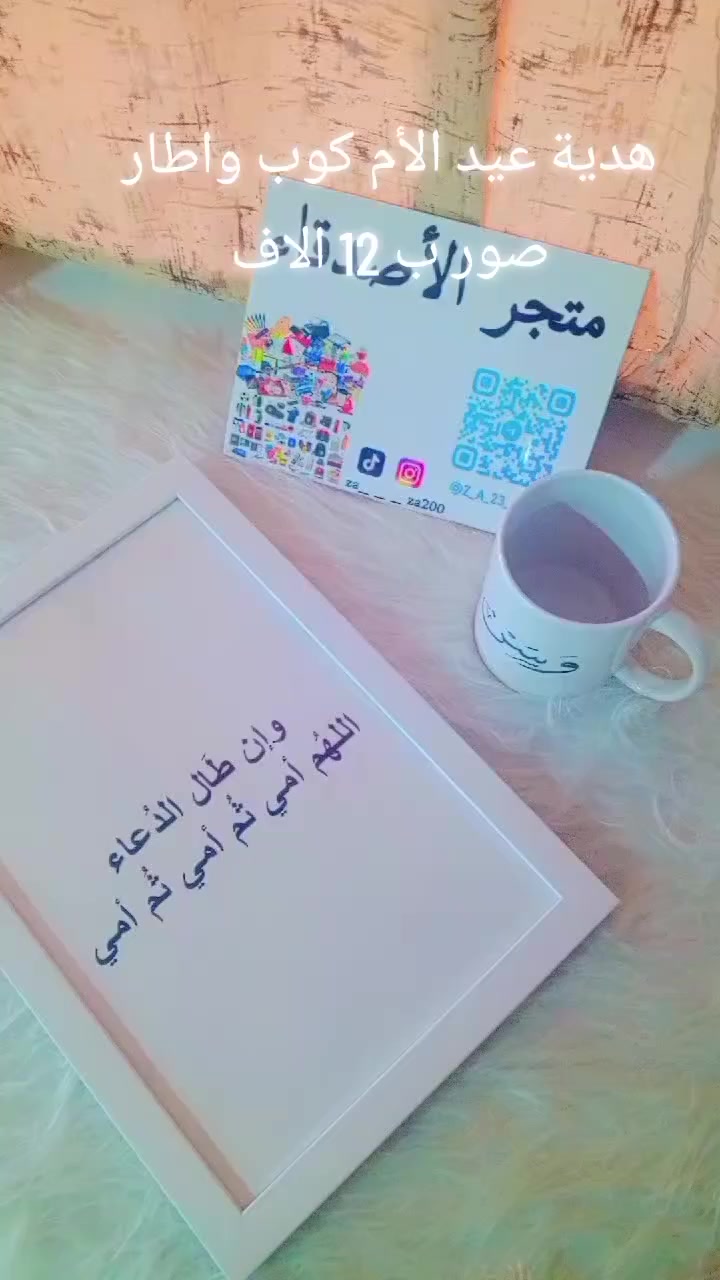 هدية عيد الأم كوب واطار
صور ب 12 الاف
متجر الأصدقاء
za_ _ _ _ za200
@Z_A_23_
وإن طَال الدُعاء
اللهُم أمي ثُم أمي ثُم أمي